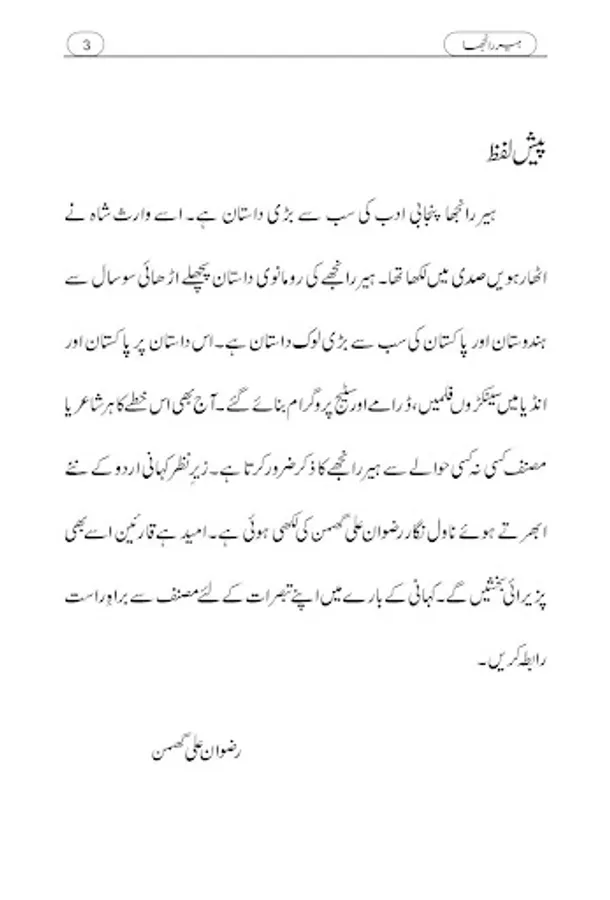 ہیر رانجھا
3
پیش لفظ
ہیر رانجھا پنجابی ادب کی سب سے بڑی داستان ہے۔ اسے وارث شاہ نے
اٹھارہویں صدی میں لکھا تھا۔ ہیر رانجھے کی رومانوی داستان پچھلے اڑھائی سو سال سے
ہندوستان اور پاکستان کی سب سے بڑی لوک داستان ہے۔ اس داستان پر پاکستان اور
انڈیا میں سینکڑوں فلمیں، ڈرامے اور سٹیج پروگرام بنائے گئے۔ آج بھی اس خطے کا ہر شاعر یا
مصنف کسی نہ کسی حوالے سے ہیر رانجھے کا ذکر ضرور کرتا ہے۔ زیرِ نظر کہانی اردو کے نئے
ابھرتے ہوئے ناول نگار رضوان علی گھمن کی لکھی ہوئی ہے۔ امید ہے قارئین اسے بھی
پزیرائی بخشیں گے۔ کہانی کے بارے میں اپنے تبصرات کے لئے مصنف سے براہِ راست
رابطہ کریں۔
رضوان علی گھمن